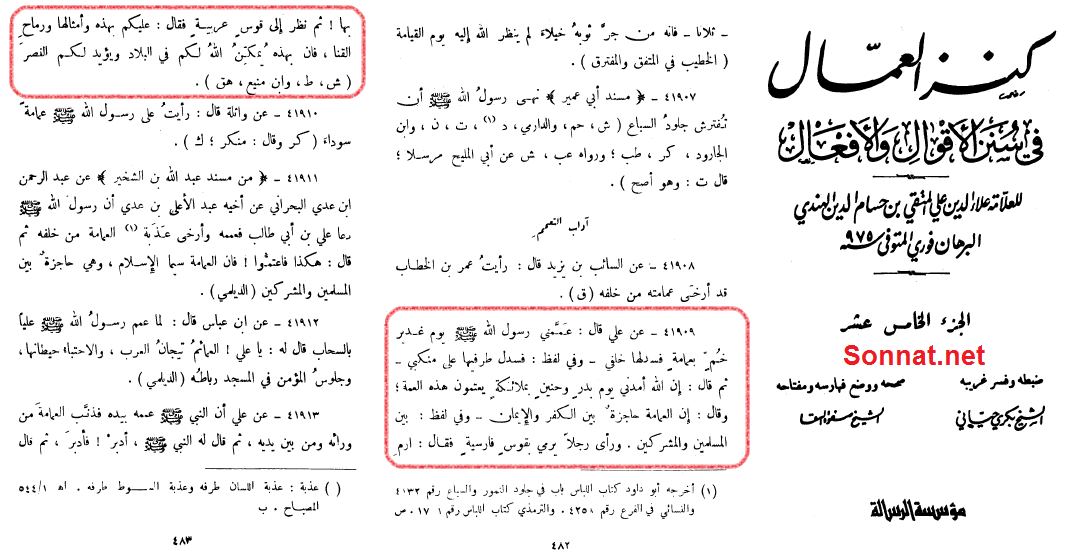 كنز العمال
في سنن الأقوال والأفعال
للعلامة علاء الدين علي المتقي بن حسام الدين الهندي
البرهان فوري المتوفى سنة ٩٧٥
الجزء الخامس عشر
Sonnat.net
ضبطه وفسر غريبه
الشيخ بكري حياني
صححه ووضع فهارسه ومفتاحه
الشيخ صفوة السقا
مؤسسة الرسالة
ـ ثلاثا ـ فانه من جرَّ ثوبهُ خيلاءَ لم ينظر الله إليه يوم القيامة
( الخطيب في المتفق والمفترق ) .
٤١٩٠٧ ـ ﴿ مسند أبي عمير ﴾ نهى رسولُ الله ﷺ أن
تُفترش جلودُ السباع ( ش ، حم ، والدارمي ، د (١) ، ت ، ن ، وابن
الجارود ، كر ، طب ؛ ورواه عب ، ش عن أبي المليح مرسلا ؛
قال ت : وهو أصح ) .
آداب التعمم
٤١٩٠٨ ـ عن السائب بن يزيد قال : رأيتُ عمر بن الخطاب
قد أرخى عمامته من خلفه ( ق ) .
٤١٩٠٩ ـ عن علي قال : عَمَّمني رسول الله ﷺ يوم غدير
خُمٍّ بعمامةٍ فسدلها خلفي ـ وفي لفظ : فسدل طرفيها على منكبي ـ
ثم قال : إن الله أمدني يوم بدرٍ وحنينٍ بملائكةٍ يعتمون هذه العمة ؛
وقال : إن العمامة حاجزةٌ بين الكفر والإيمان ـ وفي لفظ : بين
المسلمين والمشركين . ورأى رجلاً يرمي بقوسٍ فارسيةٍ فقال : ارم
(١) أخرجه أبو داود كتاب اللباس باب في جلود النمور والسباع رقم ٤١٣٢
والنسائي في الفرع رقم ٤٢٥٨ . والترمذي كتاب اللباس رقم ١٧٠١ . ص
٤٨٢
بها ! ثم نظر إلى قوسٍ عربيةٍ فقال : عليكم بهذه وأمثالها ورماح
القنا ، فان بهذه يُمكّنُ اللهُ لكم في البلاد ويؤيد لكم النصر
( ش ، ط ، وابن منيع ، هق ) .
٤١٩١٠ ـ عن واثلة قال : رأيتُ على رسول الله ﷺ عمامةً
سوداءَ ( كر وقال : منكر ؛ ك ) .
٤١٩١١ ـ ﴿ من مسند عبد الله بن الشخير ﴾ عن عبد الرحمن
ابن عدي البحراني عن أخيه عبد الأعلى بن عدي أن رسول الله ﷺ
دعا علي بن أبي طالب فعممه وأرخى عَذَبة (١) العمامة من خلفه ثم
قال : هكذا فاعتمُّوا ! فان العمامة سيما الإسلام ، وهي حاجزةٌ بين
المسلمين والمشركين ( الديلمي ) .
٤١٩١٢ ـ عن ابن عباس قال : لما عمم رسولُ الله ﷺ علياً
بالسحاب قال له : يا علي ! العمائمُ تيجانُ العرب ، والاحتباء حيطانها ،
وجلوسُ المؤمن في المسجد رباطُه ( الديلمي ) .
٤١٩١٣ ـ عن علي أن النبي ﷺ عممه بيده فذنَّب العمامة من
ورائه ومن بين يديه ، ثم قال له النبي ﷺ ، أدبر ! فأدبرَ ، ثم قال
( ) عذبة : عذبة اللسان طرفه وعذبة السوط طرفه . اهـ ٥٤٤/١
المصباح . ب
٤٨٣